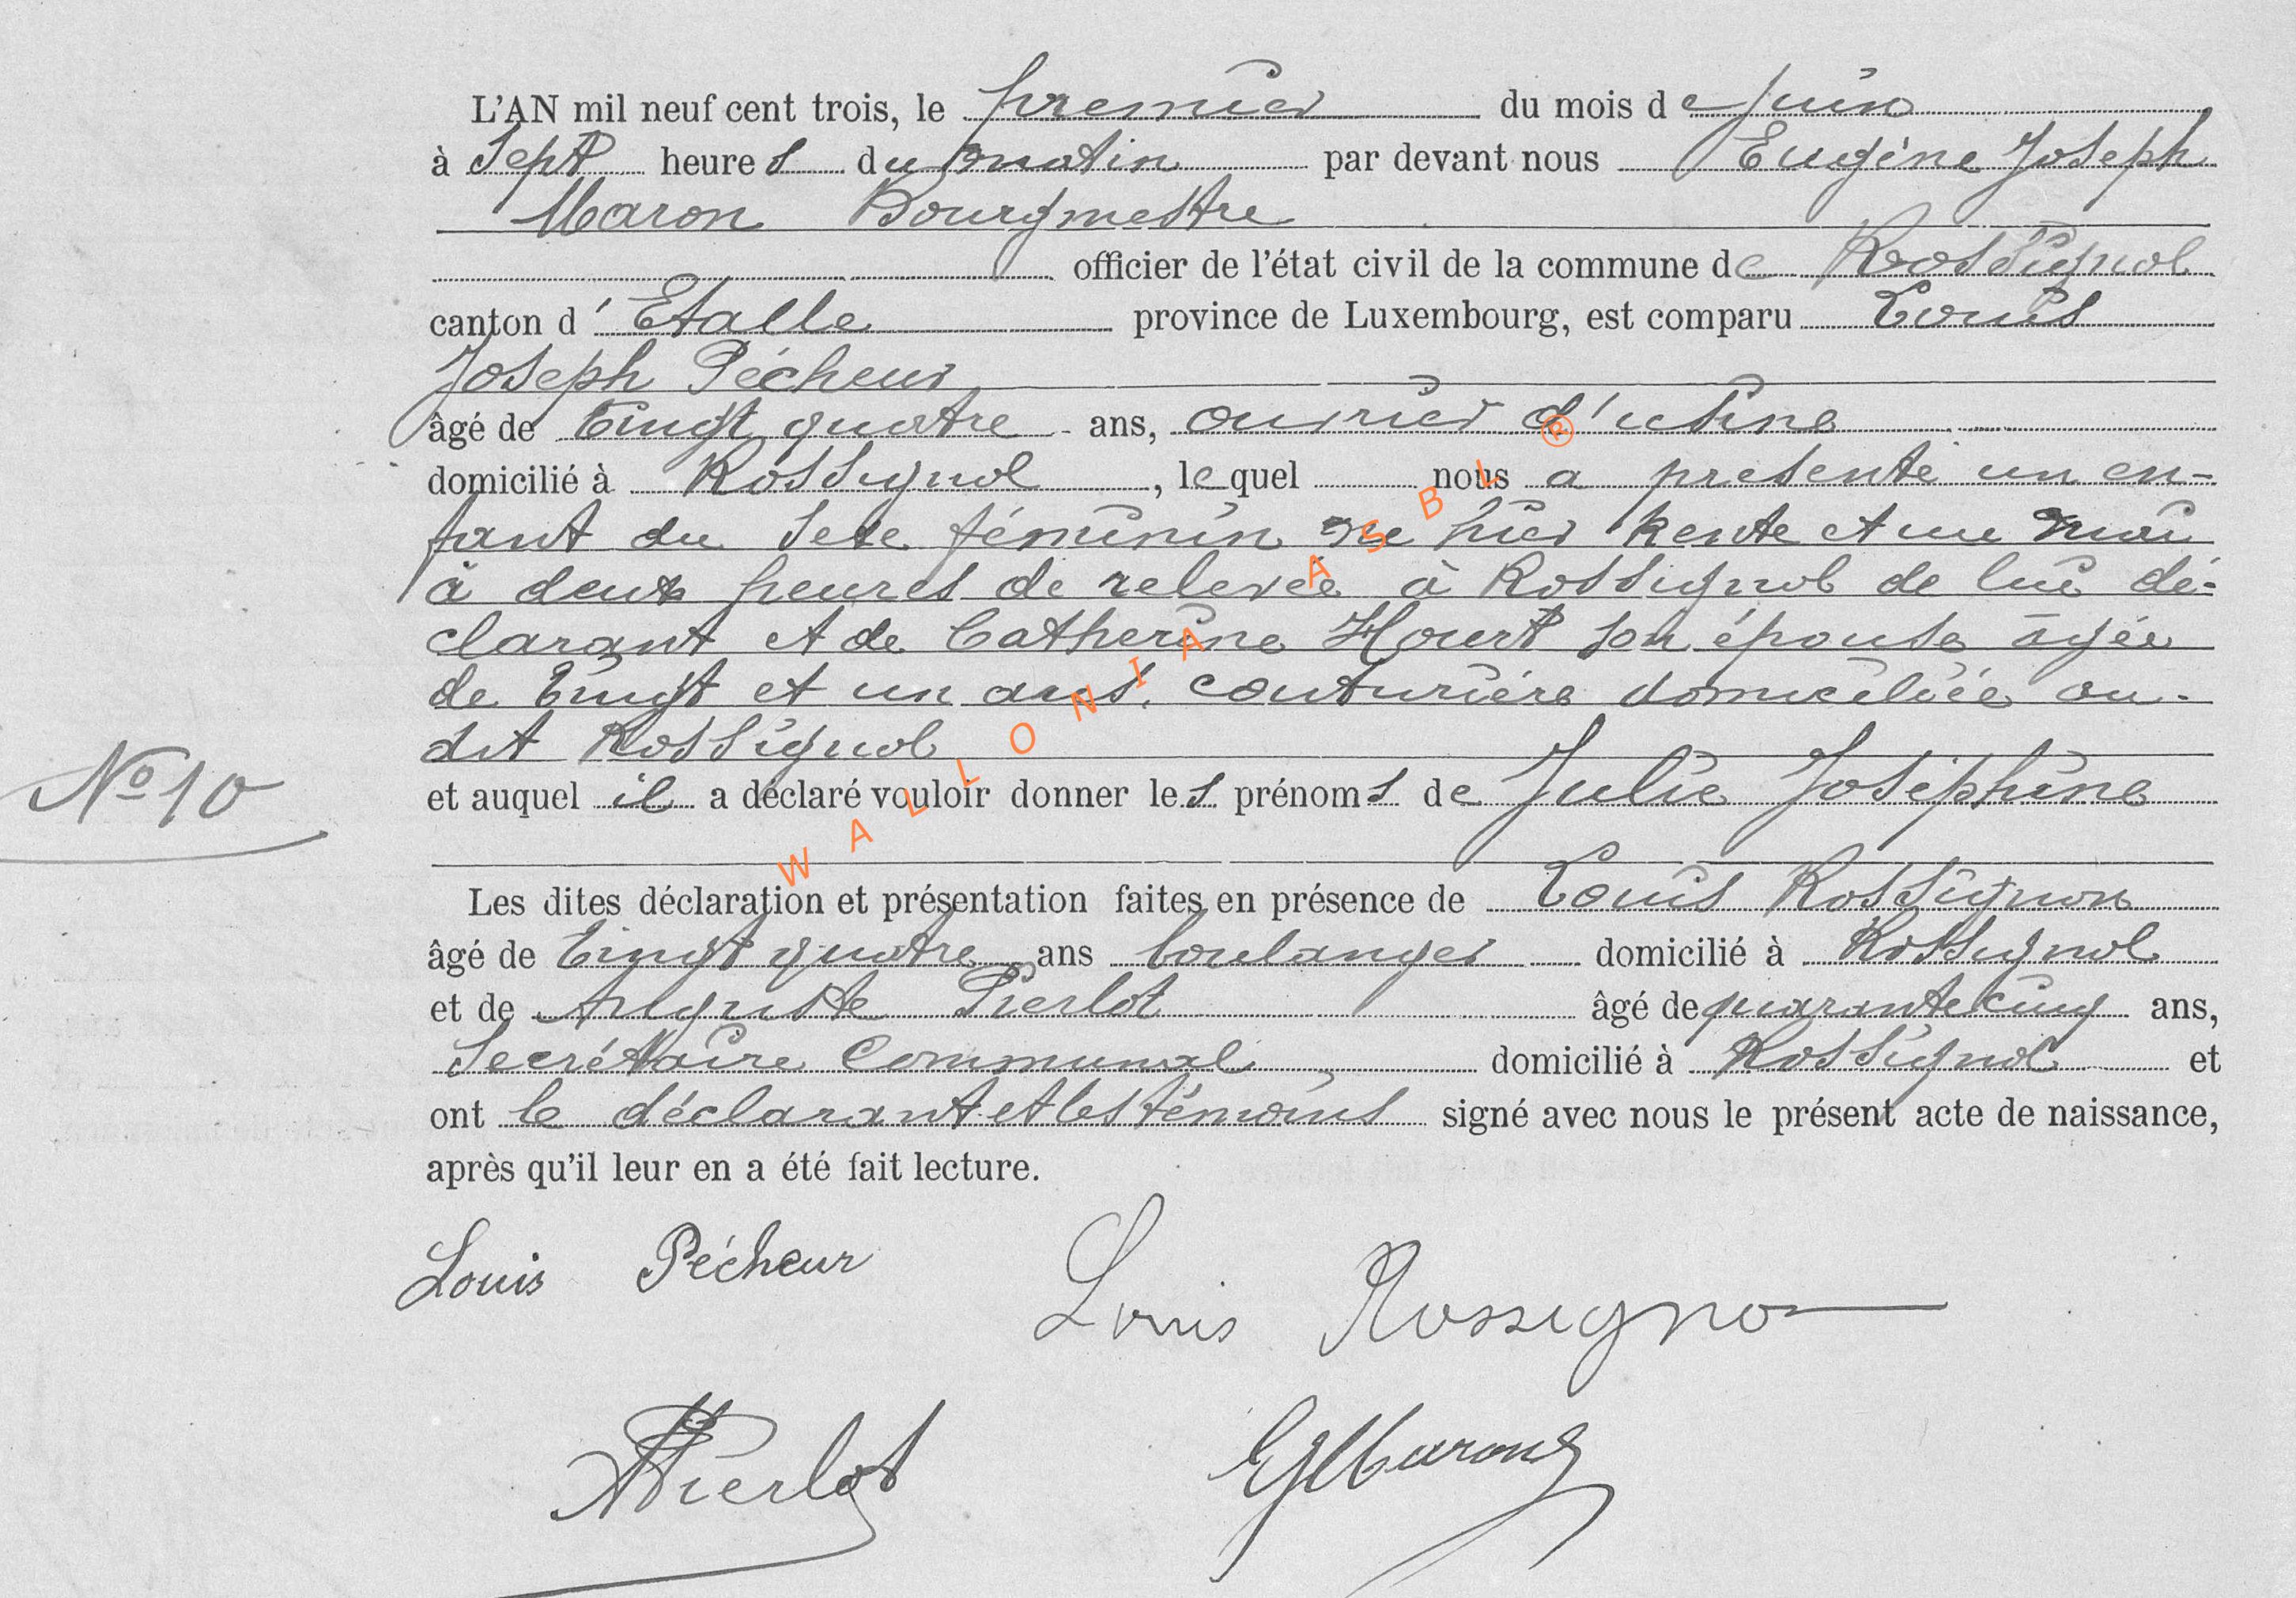 L'AN mil neuf cent trois, le premier du mois de juin
à Sept heures du matin par devant nous Eugène Joseph
Maron Bourgmestre
officier de l'état civil de la commune de Rossignol
canton d'Etalle province de Luxembourg, est comparu Louis
Joseph Pécheur
âgé de Vingt quatre ans, ouvrier d'usine
domicilié à Rossignol, lequel nous a presenté un en-
fant du sexe féminin né hier trente et un mai
à deux heures de relevée à Rossignol de lui dé-
clarant et de Catherine Hourt son épouse âgée
de Vingt et un ans, couturière domiciliée au-
dit Rossignol
No 10
et auquel il a déclaré vouloir donner les prénoms de Julie Joséphine
Les dites déclaration et présentation faites en présence de Louis Rossignon
âgé de Vingt quatre ans boulanger domicilié à Rossignol
et de Auguste Pierlot âgé de quarante cinq ans,
Secrétaire Communal domicilié à Rossignol et
ont le déclarant et les témoins signé avec nous le présent acte de naissance,
après qu'il leur en a été fait lecture.
Louis Pécheur Louis Rossignon
APierlot EJMaron
WALLONIA ASBL ®